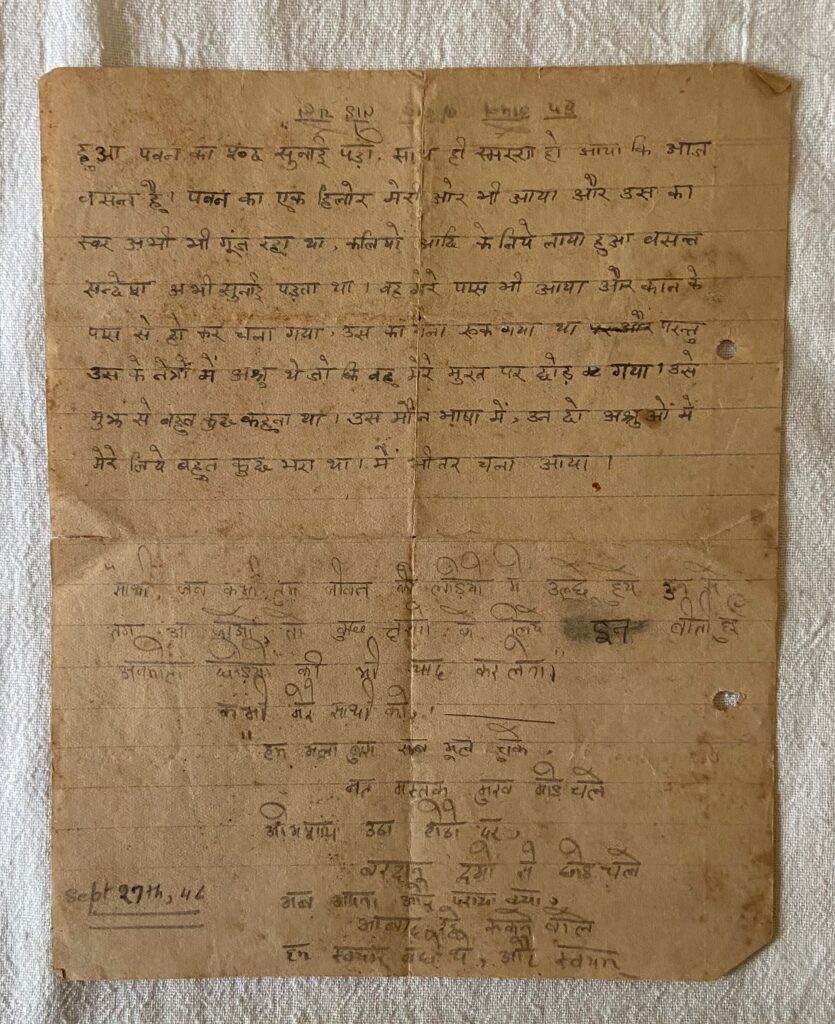 हुआ पवन का शब्द सुनाई पड़ा, साथ ही स्मरण हो आया कि आज
वसन्त है। पवन का एक हिलोर मेरी ओर भी आया और उस का
स्वर अभी भी गूंज रहा था, कलियों आदि के लिये लाया हुआ वसन्त
सन्देश अभी सुनाई पड़ता था। वह मेरे पास भी आया और कान के
पास से हो कर चला गया, उस का गला रूक गया था परन्तु
उस के नेत्रों में अश्रु थे जो कि वह मेरे मुख पर छोड़ गया। उसे
मुझ से बहुत कुछ कहना था। उस मौन भाषा में, उन दो अश्रुओं में
मेरे लिये बहुत कुछ भरा था। मैं भीतर चला आया।
"साथी, जब कभी तुम जीवन की में उलझे हुये उन से
तंग आ जाओ, तो कुछ के लिये इन बीती हुई
की भी याद कर लेना।
कभी मेरे साथी की,
"हम भला बुरा सब भूल चुके,
नत मस्तक मुख मोड़ चले
अभिशाप उठा होठों पर,
वरदान दृगों से छोड़ चले
अब अपना और पराया क्या,
आबाद रहें रुकने वाले
हम स्वयम् बंधे थे, और स्वयम्
Sept 27th, 46